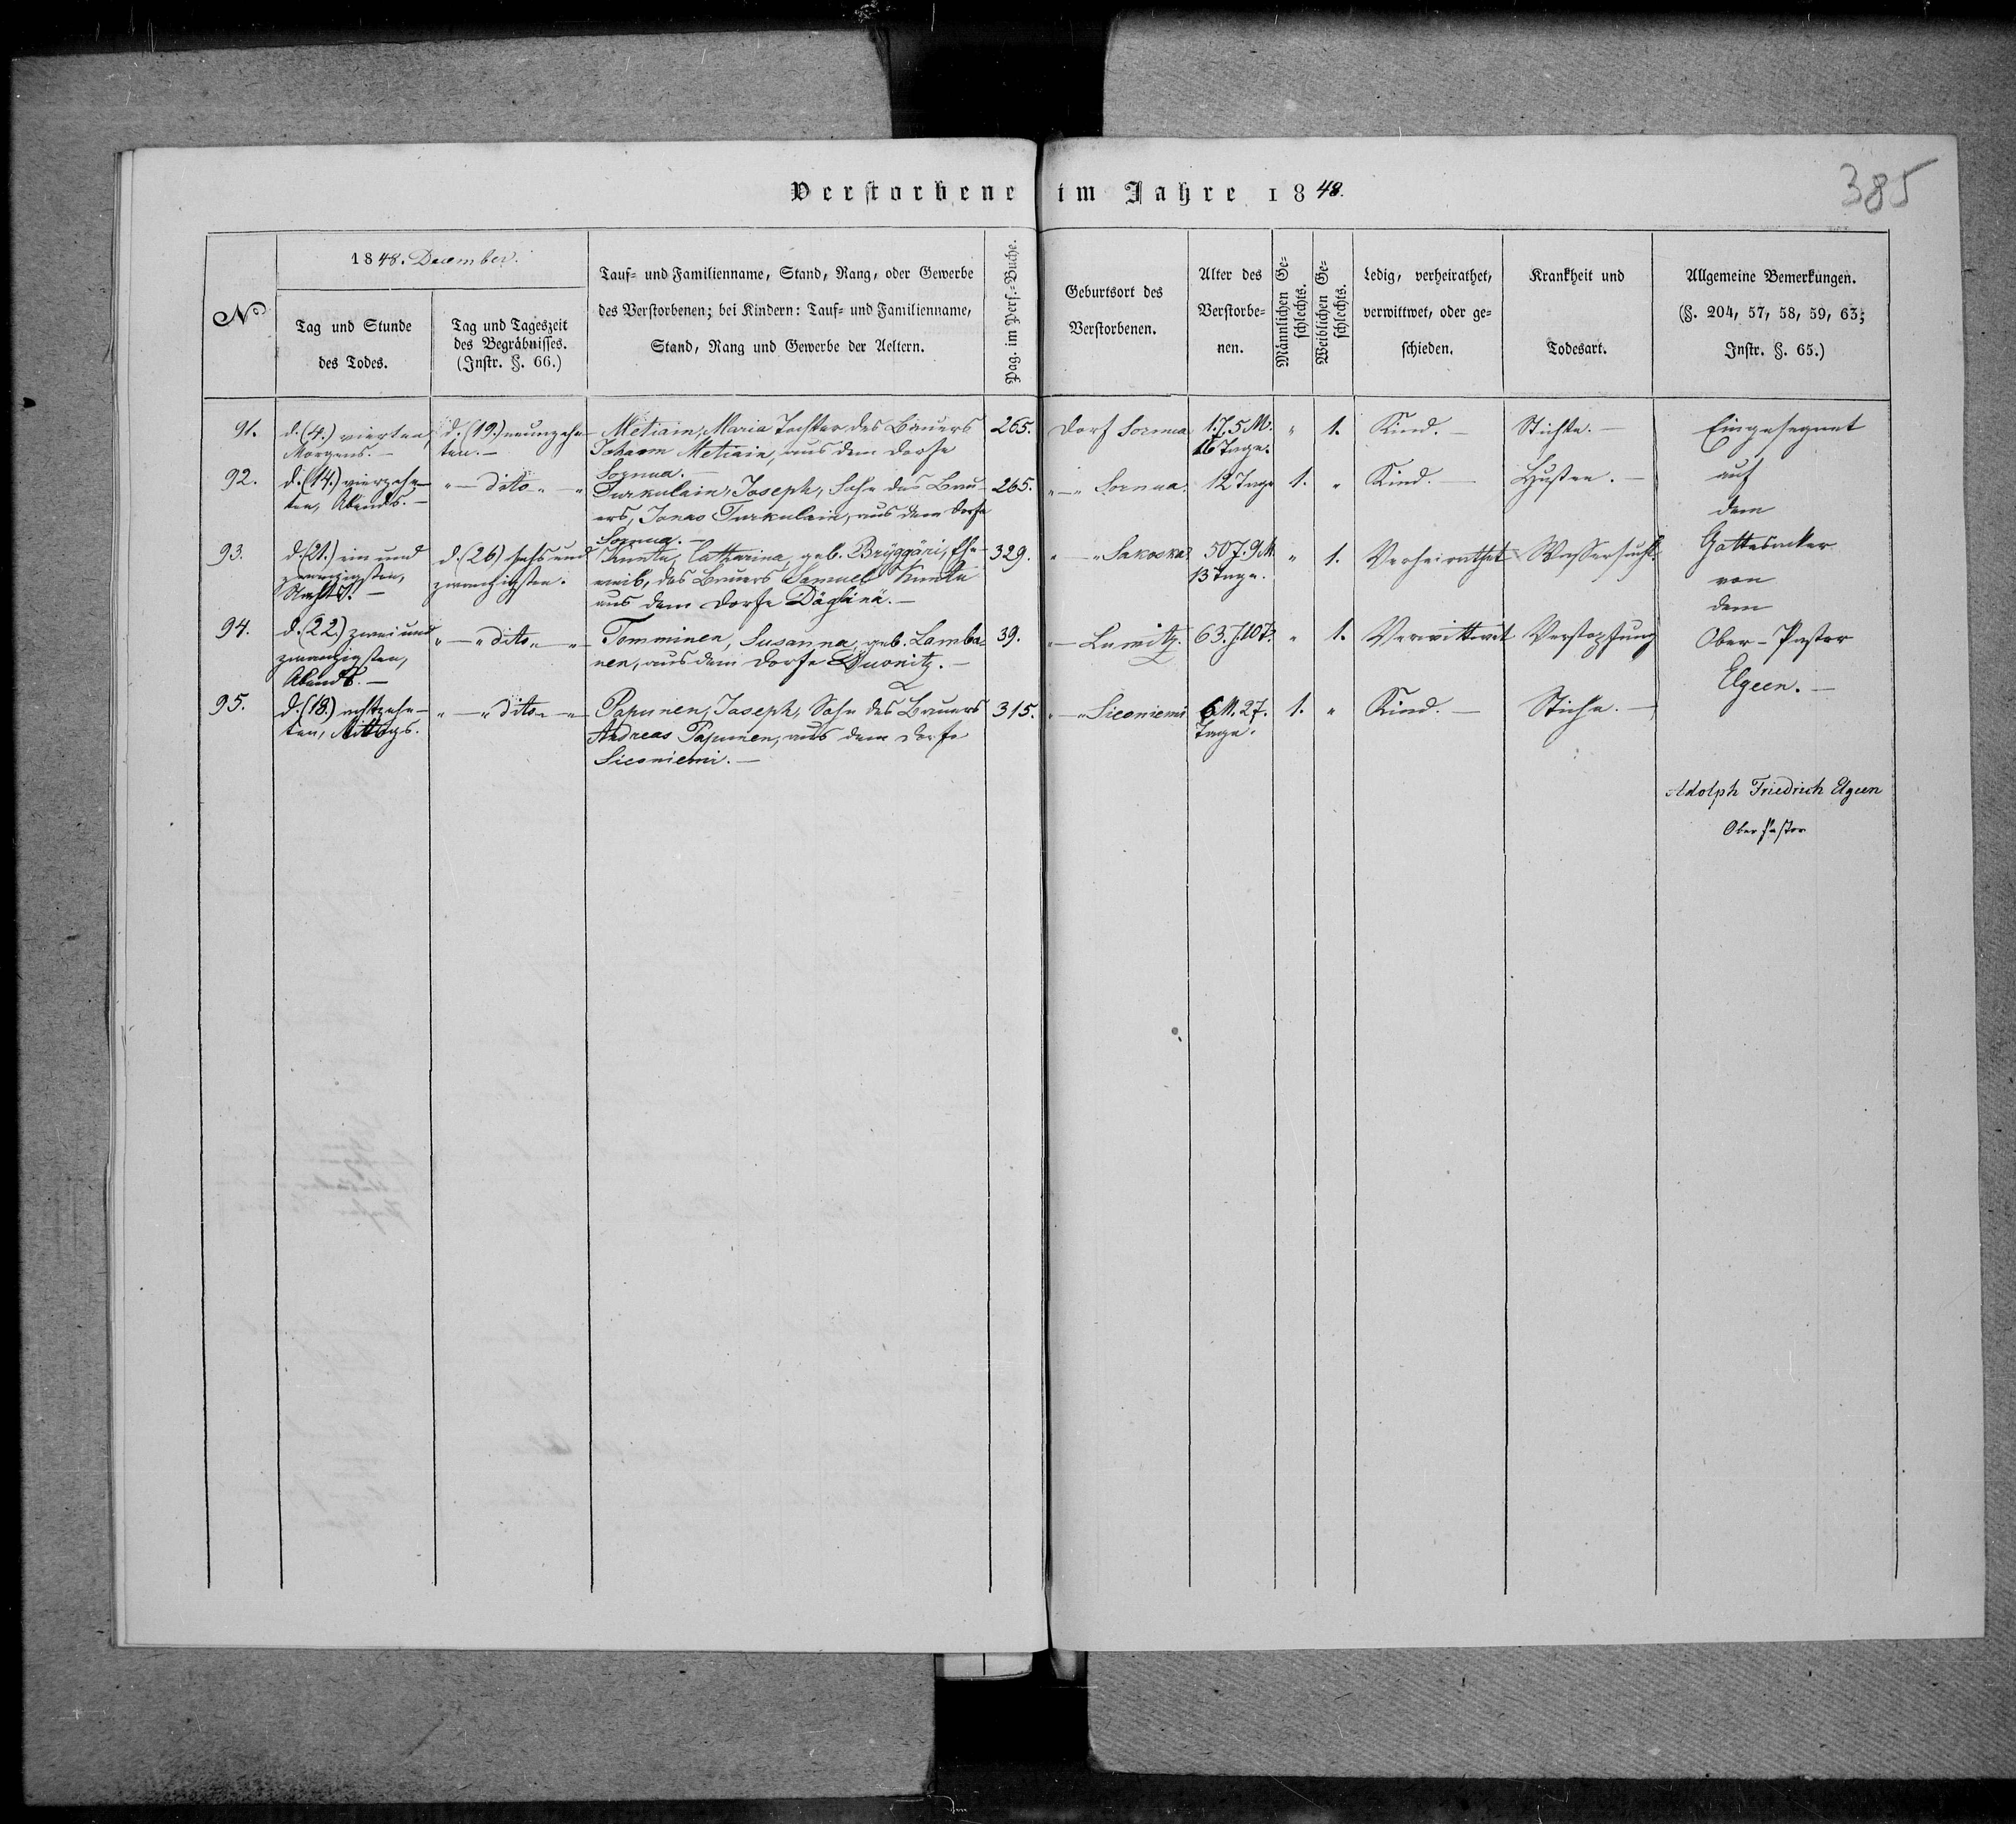 Verstorbene im Jahre 1848.
385
No
1848. December.
Tag und Stunde
des Todes.
Tag und Tageszeit
des Begräbnisses.
(Instr. §. 66.)
Tauf- und Familienname, Stand, Rang, oder Gewerbe
des Verstorbenen; bei Kindern: Tauf- und Familienname,
Stand, Rang und Gewerbe der Aeltern.
Pag. im Pers.-Buche.
Geburtsort des
Verstorbenen.
Alter des
Verstorbe-
nen.
Männlichen Ge-
schlechts.
Weiblichen Ge-
schlechts.
Ledig, verheirathet,
verwittwet, oder ge-
schieden.
Krankheit und
Todesart.
Allgemeine Bemerkungen.
(§. 204, 57, 58, 59, 63;
Instr. §. 65.)
91.
d. (4.) vierten,
Morgens.—
d. (19.) neunzehn-
ten.—
Metiain, Maria Tochter des Bauers
Johann Metiain, aus dem Dorfe
Sornua.—
265.
Dorf Sornua
1 J. 5 M.
16 Tage.
"
1.
Kind.—
Stiche.—
92.
d. (14.) vierzehn-
ten, Abends.—
"— dito "—"
Turkulain, Joseph, Sohn des Bau-
ers, Jonas Turkulain, aus dem Dorfe
Sornua.—
265.
"—" Sornua.
12 Tage
1.
"
Kind.—
Husten.—
93.
d. (21.) ein und
zwanzigsten,
Nachts.—
d. (26) sechs und
zwanzigsten.
Kuntu, Catharina, geb. Brÿggäri, Ehe-
weib, des Bauers Samuel Kuntu
aus dem Dorfe Däglinä.—
329.
"—" Sakoska
50 J. 9 M.
13 Tage.
"
1.
Verheirathet
Wassersucht.
94.
d. (22.) zwei und
zwanzigsten,
Abends.—
"—" dito "—"
Tomminen, Susanna, geb. Lamba-
nen, aus dem Dorfe Duonitz.—
39.
"— Lumitz.
63. J. 10 T.
"
1.
Verwittwet
Verstopfung
95.
d. (18.) achtzehn-
ten, Mittags.
"—" dito "—"
Papunen, Joseph, Sohn des Bauers
Andreas Papunen, aus dem Dorfe
Siconiemi.—
315.
"—" Siconiemi
6 M. 27.
Tage.
1.
"
Kind.—
Stiche.—
Eingesegnet
auf
dem
Gottesacker
von
dem
Ober-Pastor
Elgeen.—
Adolph Friedrich Elgeen
Ober Pastor